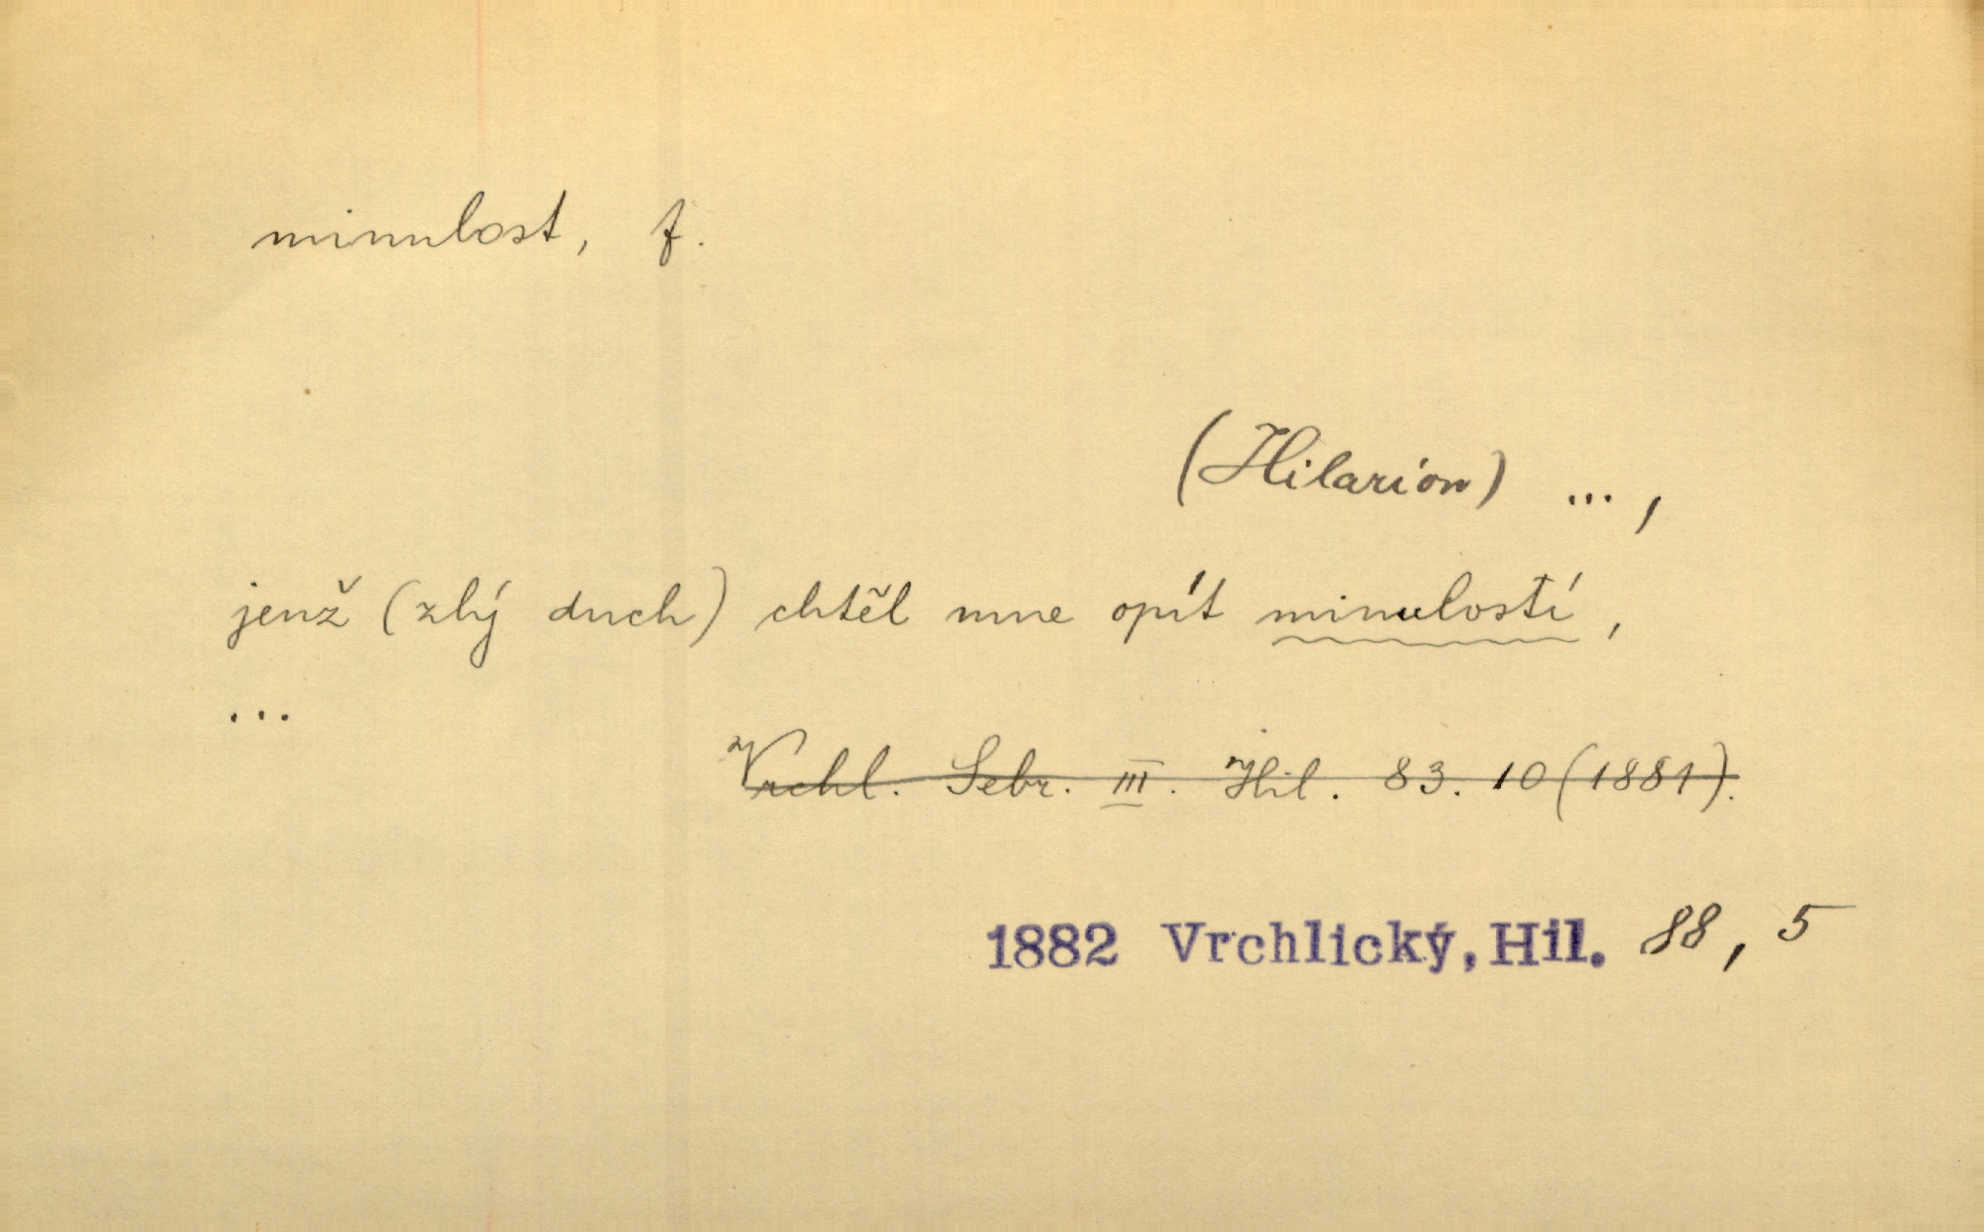 minulost, f.
(Hilarion) ...,
jenž (zlý duch) chtěl mne opít minulostí,
...
Vrchl. Sebr. III. Hil. 83. 10 (1881).
1882 Vrchlický, Hil. 88, 5